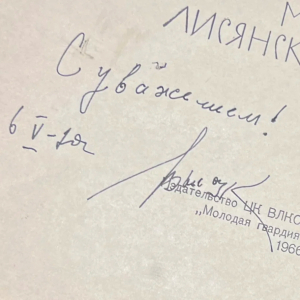 М
ЛИСЯНСК
С уважением!
6 V-70г
Издательство ЦК ВЛКС
„Молодая гвардия
1966